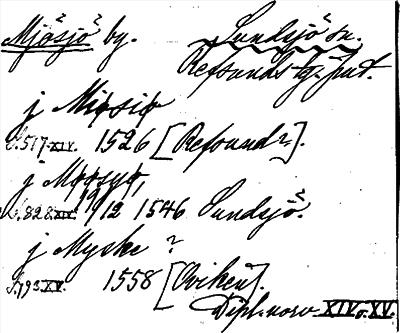 Mjösjö by. Sundsjö sn.
Refsunds tg. Jmt.
j Miøsiø
S. 517 XIV. 1526 [Refsund?].
j Møøsyø,
S. 828 XIV. 19/12 1546 Sundsjö.
j Myske ?
S. 793 XV. 1558 [Oviken].
Dipl. norv XIV o. XV.